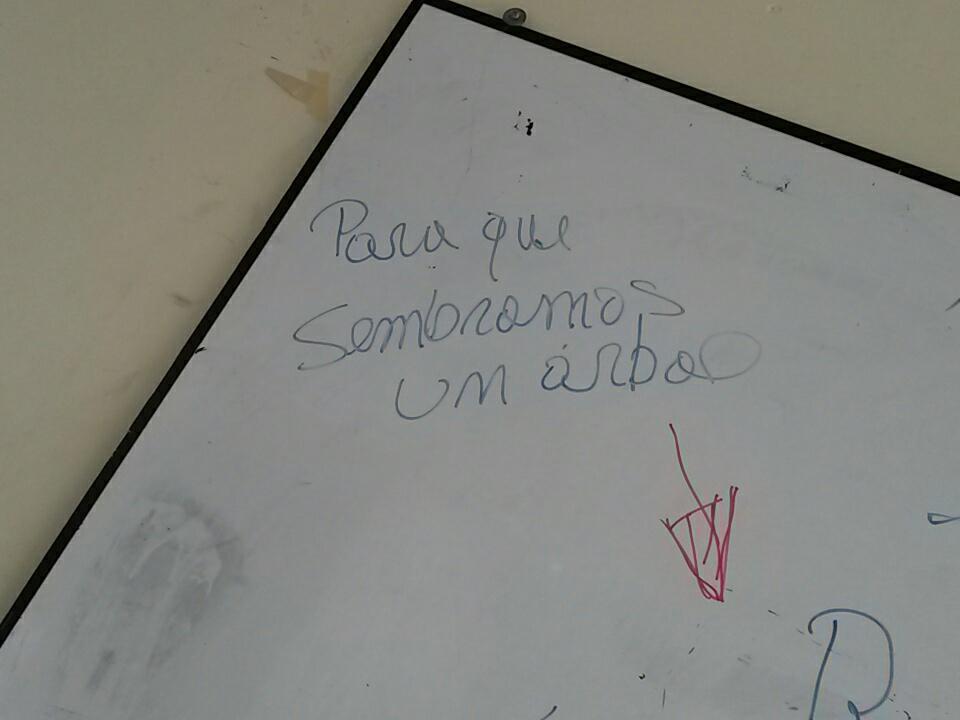 Para que
Sembramos
un árbol
R